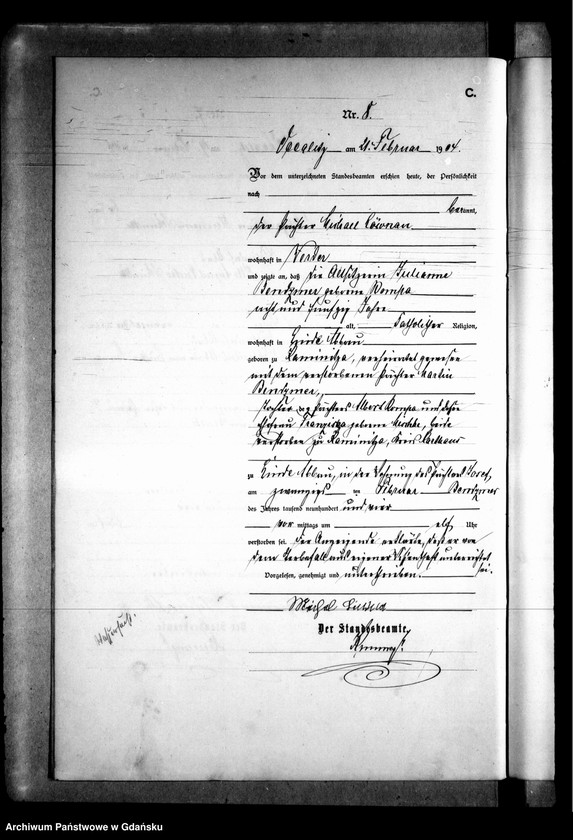 C.
Nr. 8.
am 21. Februar 1904.
Vor dem unterzeichneten Standesbeamten erschien heute, der Persönlichkeit
nach
bekannt,
der Pächter Michael
wohnhaft in Werder
und zeigte an, daß die Altsitzerin Julianne
geborene Kompa
acht und fünfzig Jahre
alt, katholischer Religion,
wohnhaft in Linde Abbau
geboren zu Kaminitza, verheiratet gewesen
mit dem verstorbenen Pächter Martin
Tochter des Pächters Albert Kompa und dessen
Ehefrau Franziska geborene beide
verstorben zu Kaminitza, Kreis Karthaus
zu Linde Abbau, in der Wohnung des Pächters Josef
am zwanzigsten Februar
des Jahres tausend neunhundert und vier
vor mittags um elf Uhr
verstorben sei. Der Anzeigende erklärte, daß er von
dem Sterbefall aus eigener Wissenschaft unterrichtet
sei.
Vorgelesen, genehmigt und unterschrieben.
Michal
Der Standesbeamte.
Archiwum Państwowe w Gdańsku